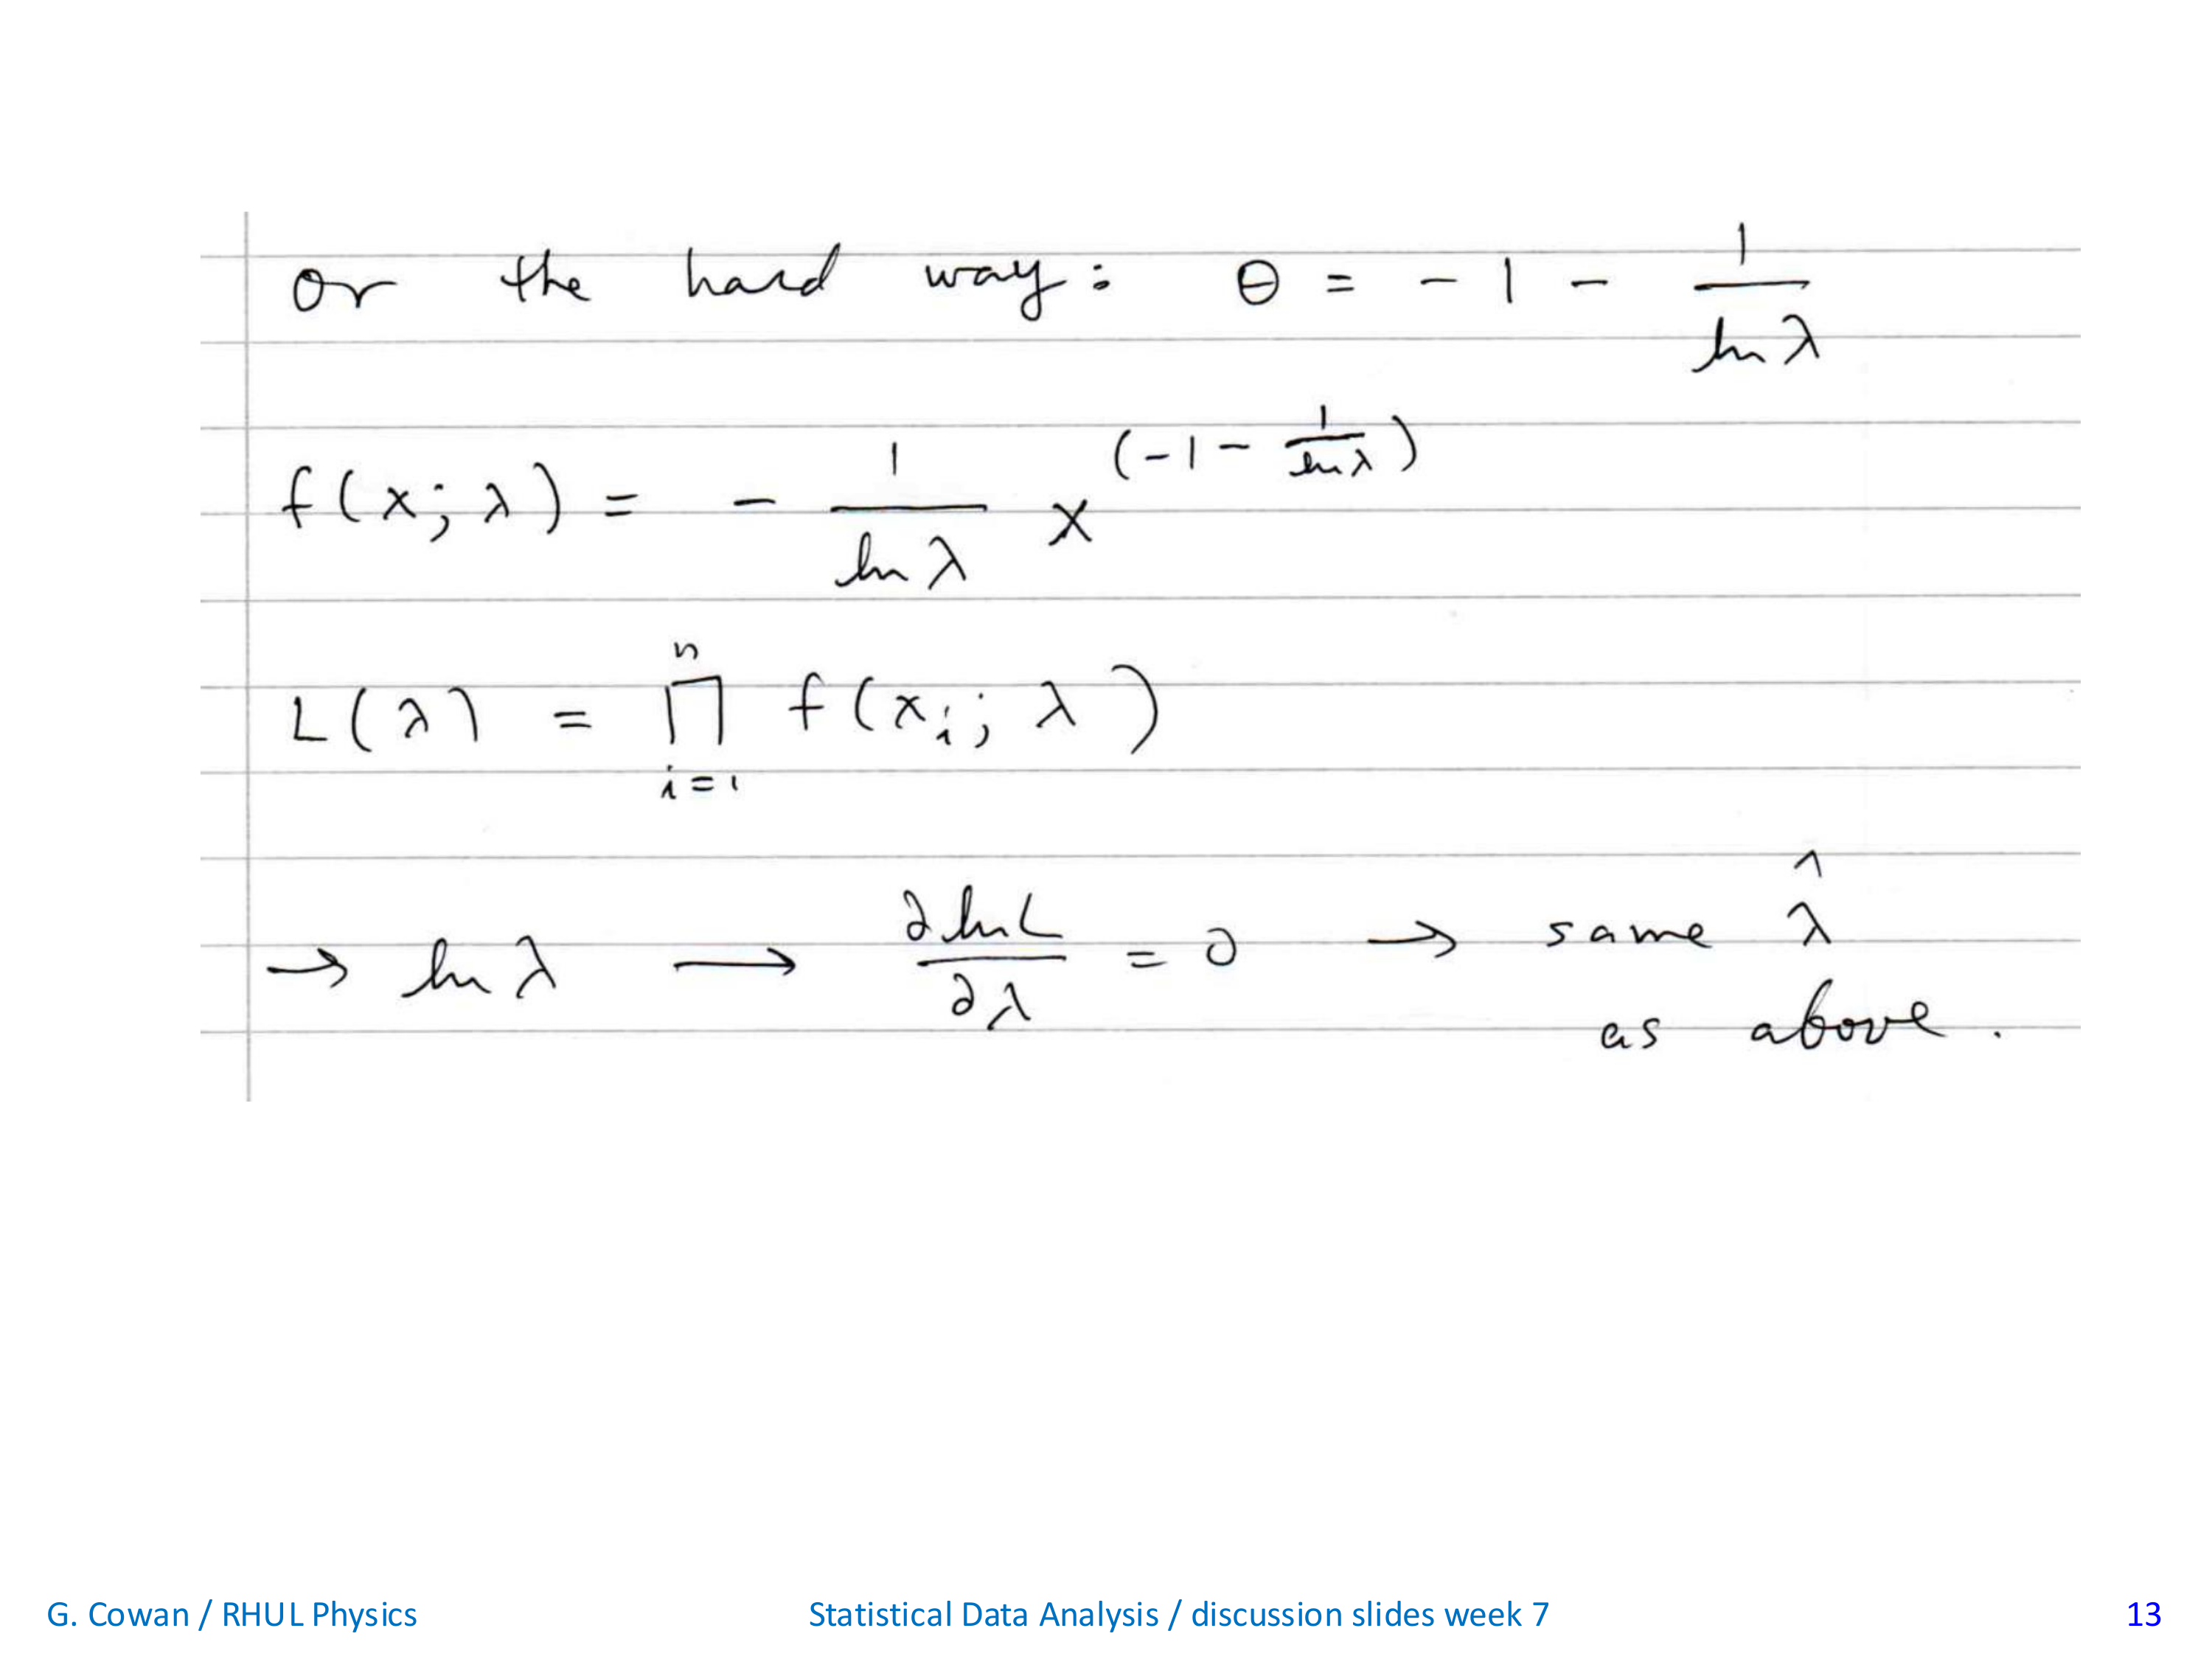 or the hard way: θ = - 1 - 1/ln λ
f(x; λ) = - 1/ln λ x^(-1 - 1/ln λ)
L(λ) = ∏_{i=1}^{n} f(x_i; λ)
→ ln λ → ∂ ln L/∂λ = 0 → same λ̂
as above.
G. Cowan / RHUL Physics Statistical Data Analysis / discussion slides week 7 13